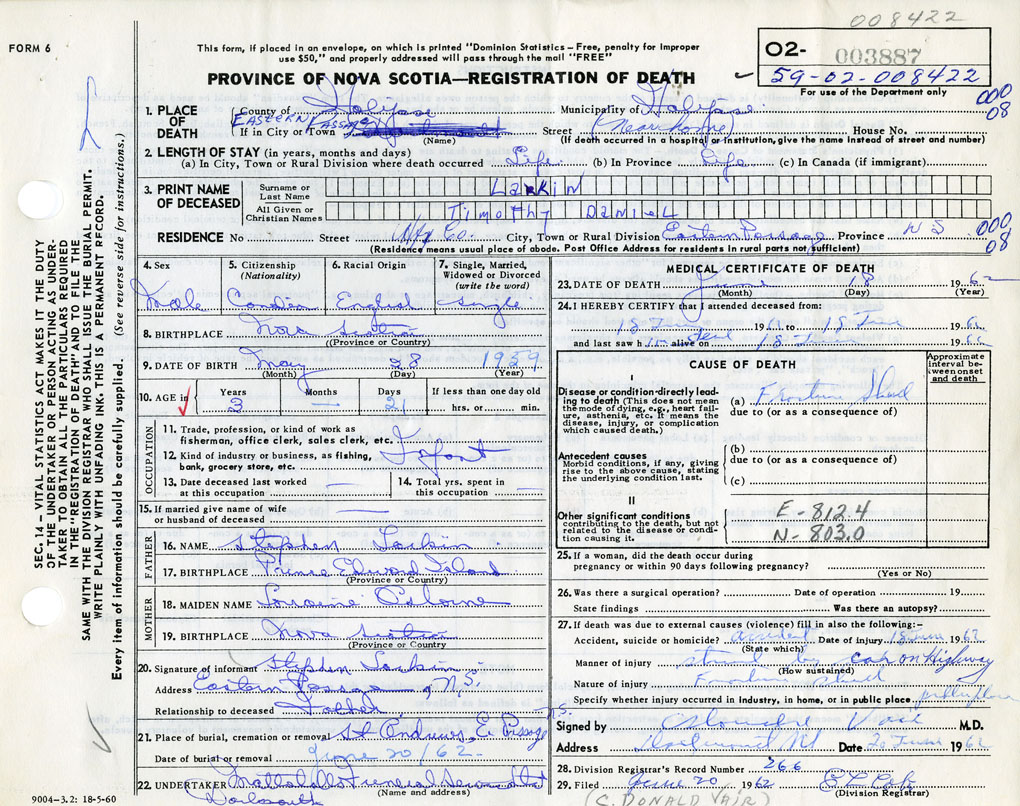 008422
FORM 6
This form, if placed in an envelope, on which is printed "Dominion Statistics – Free, penalty for improper
use $50," and properly addressed will pass through the mail "FREE"
O2- 003887
59-02-008422
For use of the Department only
PROVINCE OF NOVA SCOTIA—REGISTRATION OF DEATH
1. PLACE OF DEATH
County of Halifax Municipality of Halifax
000
08
EASTERN PASSAGE
If in City or Town Street (Near home) House No.
(Name) (If death occurred in a hospital or institution, give the name instead of street and number)
2. LENGTH OF STAY (in years, months and days)
(a) In City, Town or Rural Division where death occurred Life (b) In Province Life (c) In Canada (if immigrant)
3. PRINT NAME OF DECEASED
Surname or Last Name Larkin
All Given or Christian Names Timothy Daniel
RESIDENCE No Street Hfx Co. City, Town or Rural Division Eastern Passage Province N S
000
08
(Residence means usual place of abode. Post Office Address for residents in rural parts not sufficient)
4. Sex
Male
5. Citizenship (Nationality)
Canadian
6. Racial Origin
English
7. Single, Married, Widowed or Divorced (write the word)
Single
8. BIRTHPLACE Nova Scotia
(Province or Country)
9. DATE OF BIRTH May 28 1959
(Month) (Day) (Year)
10. AGE in Years Months Days If less than one day old
3 — 21 hrs. or min.
OCCUPATION
11. Trade, profession, or kind of work as fisherman, office clerk, sales clerk, etc.
12. Kind of industry or business, as fishing, bank, grocery store, etc.
Infant
13. Date deceased last worked at this occupation —
14. Total yrs. spent in this occupation —
15. If married give name of wife or husband of deceased —
FATHER
16. NAME Stephen Larkin
17. BIRTHPLACE Prince Edward Island
(Province or Country)
MOTHER
18. MAIDEN NAME Lorraine Osborne
19. BIRTHPLACE Nova Scotia
(Province or Country)
20. Signature of informant Stephen Larkin
Address Eastern Passage, N.S.
Relationship to deceased Father
21. Place of burial, cremation or removal St Andrews, E. Passage N.S.
Date of burial or removal June 20/62
22. UNDERTAKER Mattatall Funeral Service Ltd
(Name and address)
Dartmouth
9004-3.2: 18-5-60
MEDICAL CERTIFICATE OF DEATH
23. DATE OF DEATH June 18 1962
(Month) (Day) (Year)
24. I HEREBY CERTIFY that I attended deceased from:
18 June 1962 to 18 June 1962
and last saw h alive on 18 June 1962
CAUSE OF DEATH
Approximate interval between onset and death
I
Disease or condition directly leading to death (This does not mean the mode of dying, e.g., heart failure, asthenia, etc. It means the disease, injury, or complication which caused death.)
(a) Fracture Skull
due to (or as a consequence of)
Antecedent causes
Morbid conditions, if any, giving rise to the above cause, stating the underlying condition last.
(b)
due to (or as a consequence of)
(c)
II
Other significant conditions contributing to the death, but not related to the disease or condition causing it.
E-812.4
N-803.0
25. If a woman, did the death occur during pregnancy or within 90 days following pregnancy?
(Yes or No)
26. Was there a surgical operation? Date of operation 19
State findings Was there an autopsy?
27. If death was due to external causes (violence) fill in also the following:-
Accident, suicide or homicide? accident Date of injury 18 June 1962
(State which)
Manner of injury struck by car on Highway
(How sustained)
Nature of injury Fracture skull
Specify whether injury occurred in industry, in home, or in public place public place
Signed by M.D.
Address Dartmouth NS Date 20 June 1962
28. Division Registrar's Record Number 266
29. Filed June 20 1962
(Division Registrar)
(C. DONALD VAIR)
SEC. 14 – VITAL STATISTICS ACT MAKES IT THE DUTY
OF THE UNDERTAKER OR PERSON ACTING AS UNDER-
TAKER TO OBTAIN ALL THE PARTICULARS REQUIRED
IN THE "REGISTRATION OF DEATH" AND TO FILE THE
SAME WITH THE DIVISION REGISTRAR WHO SHALL ISSUE THE BURIAL PERMIT.
WRITE PLAINLY WITH UNFADING INK. THIS IS A PERMANENT RECORD.
Every item of information should be carefully supplied. (See reverse side for instructions.)